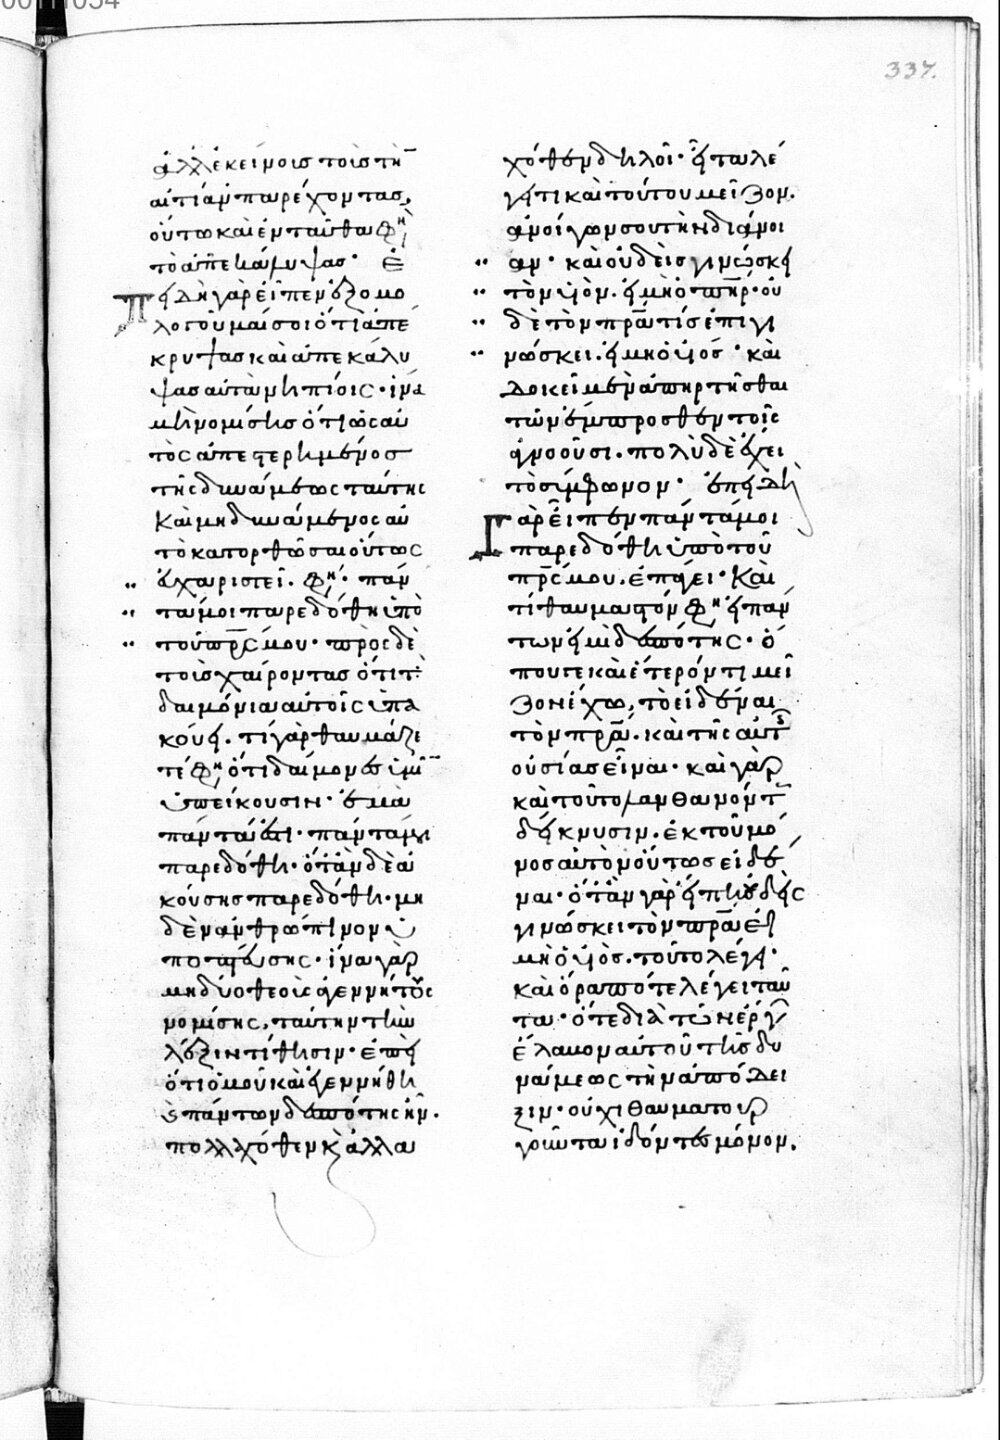 337.
ἀλλ' ἐκείνοις τοῖς τὴν
αἰτίαν παρέχοντας,
οὕτω καὶ ἐνταῦθα φησὶ
τὸ ἀπεκάλυψας· Ἐ
πειδὴ γὰρ εἶπεν ἐξομο
λογοῦμαί σοι ὅτι ἀπέ
κρυψας καὶ ἀπεκάλυ
ψας αὐτὰ νηπίοις· ἵνα
μὴ νομίσης ὅτι ὡς αὐ
τὸς ἀπεστερημένος
τῆς δυνάμεως ταύτης
καὶ μὴ δυνάμενος αὐ
τὸ κατορθῶσαι οὕτως
εὐχαριστεῖ. φησί· πάν
τα μοι παρεδόθη ὑπὸ
τοῦ πρς μου· πρὸς δὲ
τοὺς χαίροντας ὅτι τὰ
δαιμόνια αὐτοῖς ὑπα
κούει. τί γὰρ θαυμάζε
τέ φησιν ὅτι δαίμονες ὑμῖν
ὑπείκουσιν· ἐμὰ
πάντα ἐστί· πάντα μοι
παρεδόθη· ὅταν δὲ ἀ
κούσης παρεδόθη· μη
δὲν ἀνθρώπινον ὑ
ποπτεύσης· ἵνα γὰρ
μὴ δύο θεοὺς ἀγεννήτους
νομίσης, ταύτην τὴν
λέξιν τίθησιν· ἐπεὶ
ὅτι ὁμοῦ καὶ ἐγεννήθη
κ πάντων δεσπότης ἦν.
πολλαχόθεν κ ἄλλα
χόθεν δηλοῖ· εἶτα λέ
γει τι καὶ τούτου μεῖζον.
ἀνοίγων σου τὴν διάνοι
αν· καὶ οὐδεὶς γινώσκει
τὸν υἱὸν. εἰ μὴ ὁ πηρ· οὐ
δὲ τὸν πρα τίς ἐπιγι
νώσκει. εἰ μὴ ὁ υἱός· καὶ
δοκεῖ μὲν ἀπηρτῆσθαι
τῶν ἔμπροσθεν τοῖς
ἀγνοοῦσι. πολὺ δὲ ἔχει
τὸ σύμφωνον· ἐπειδὴ
γὰρ εἶπεν πάντα μοι
παρεδόθη ὑπὸ τοῦ
πρς μου. ἐπάγει· καὶ
τί θαυμαστόν φησιν εἰ πάν
των εἰμὶ δεσπότης· ὅ
που γε καὶ ἕτερόν τι μεῖ
ζον ἔχω, τὸ εἰδέναι
τὸν πρα. καὶ τῆς αὐτῆς
οὐσίας εἶναι· καὶ γὰρ
καὶ τοῦτο λανθανόντως
δείκνυσιν. ἐκ τοῦ μό
νος αὐτὸν οὕτως εἰδέ
ναι· ὅταν γὰρ εἴπη οὐδεὶς
γινώσκει τὸν πρα εἰ
μὴ ὁ υἱός. τοῦτο λέγει·
καὶ ὅρα πότε λέγει ταῦ
τα· ὅτε διὰ τῶν ἔργων
ἔλαβον αὐτοῦ τῆς δυ
νάμεως τὴν ἀπόδει
ξιν· οὐχὶ θαυματουρ
γοῦντα ἰδόντες μόνον.